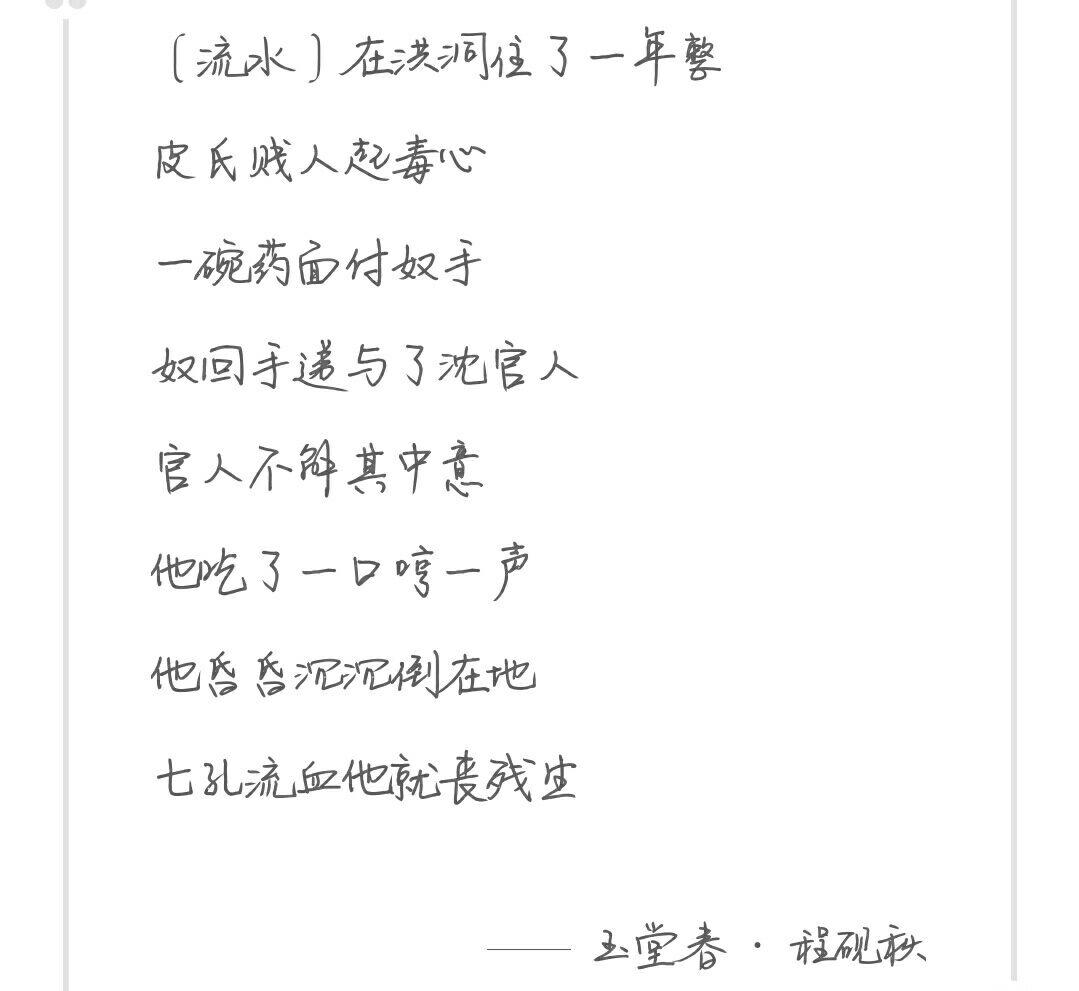 （流水）在洪洞住了一年整
皮氏贱人起毒心
一碗药面付奴手
奴回手递与了沈官人
官人不解其中意
他吃了一口哼一声
他昏昏沉沉倒在地
七孔流血他就丧残生
——玉堂春·程砚秋